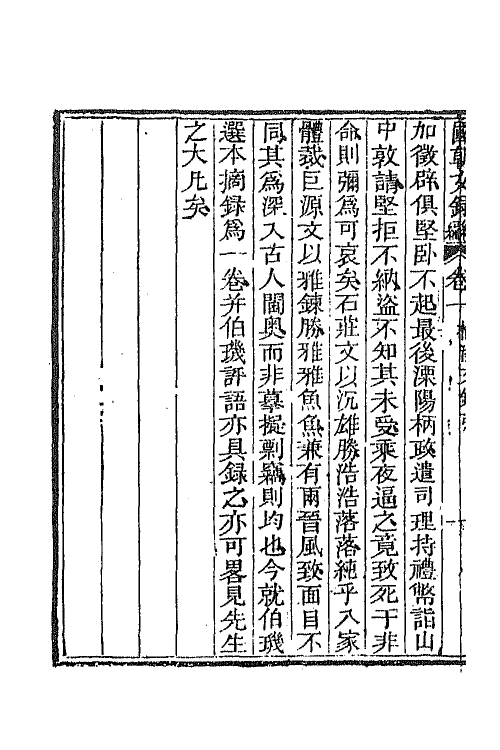 國朝文錄續編卷一
加徵辟俱堅卧不起最後溧陽柄政遣司理持禮幣詣山
中敦請堅拒不納盜不知其未受乘夜逼之竟致死于非
命則彌爲可哀矣石莊文以沉雄勝浩浩落落純乎八家
體裁巨源文以雅鍊勝雅雅魚魚兼有兩晉風致面目不
同其爲深入古人閫奥而非摹擬剽竊則均也今就伯璣
選本摘錄爲一卷并伯璣評語亦具録之亦可畧見先生
之大凡矣